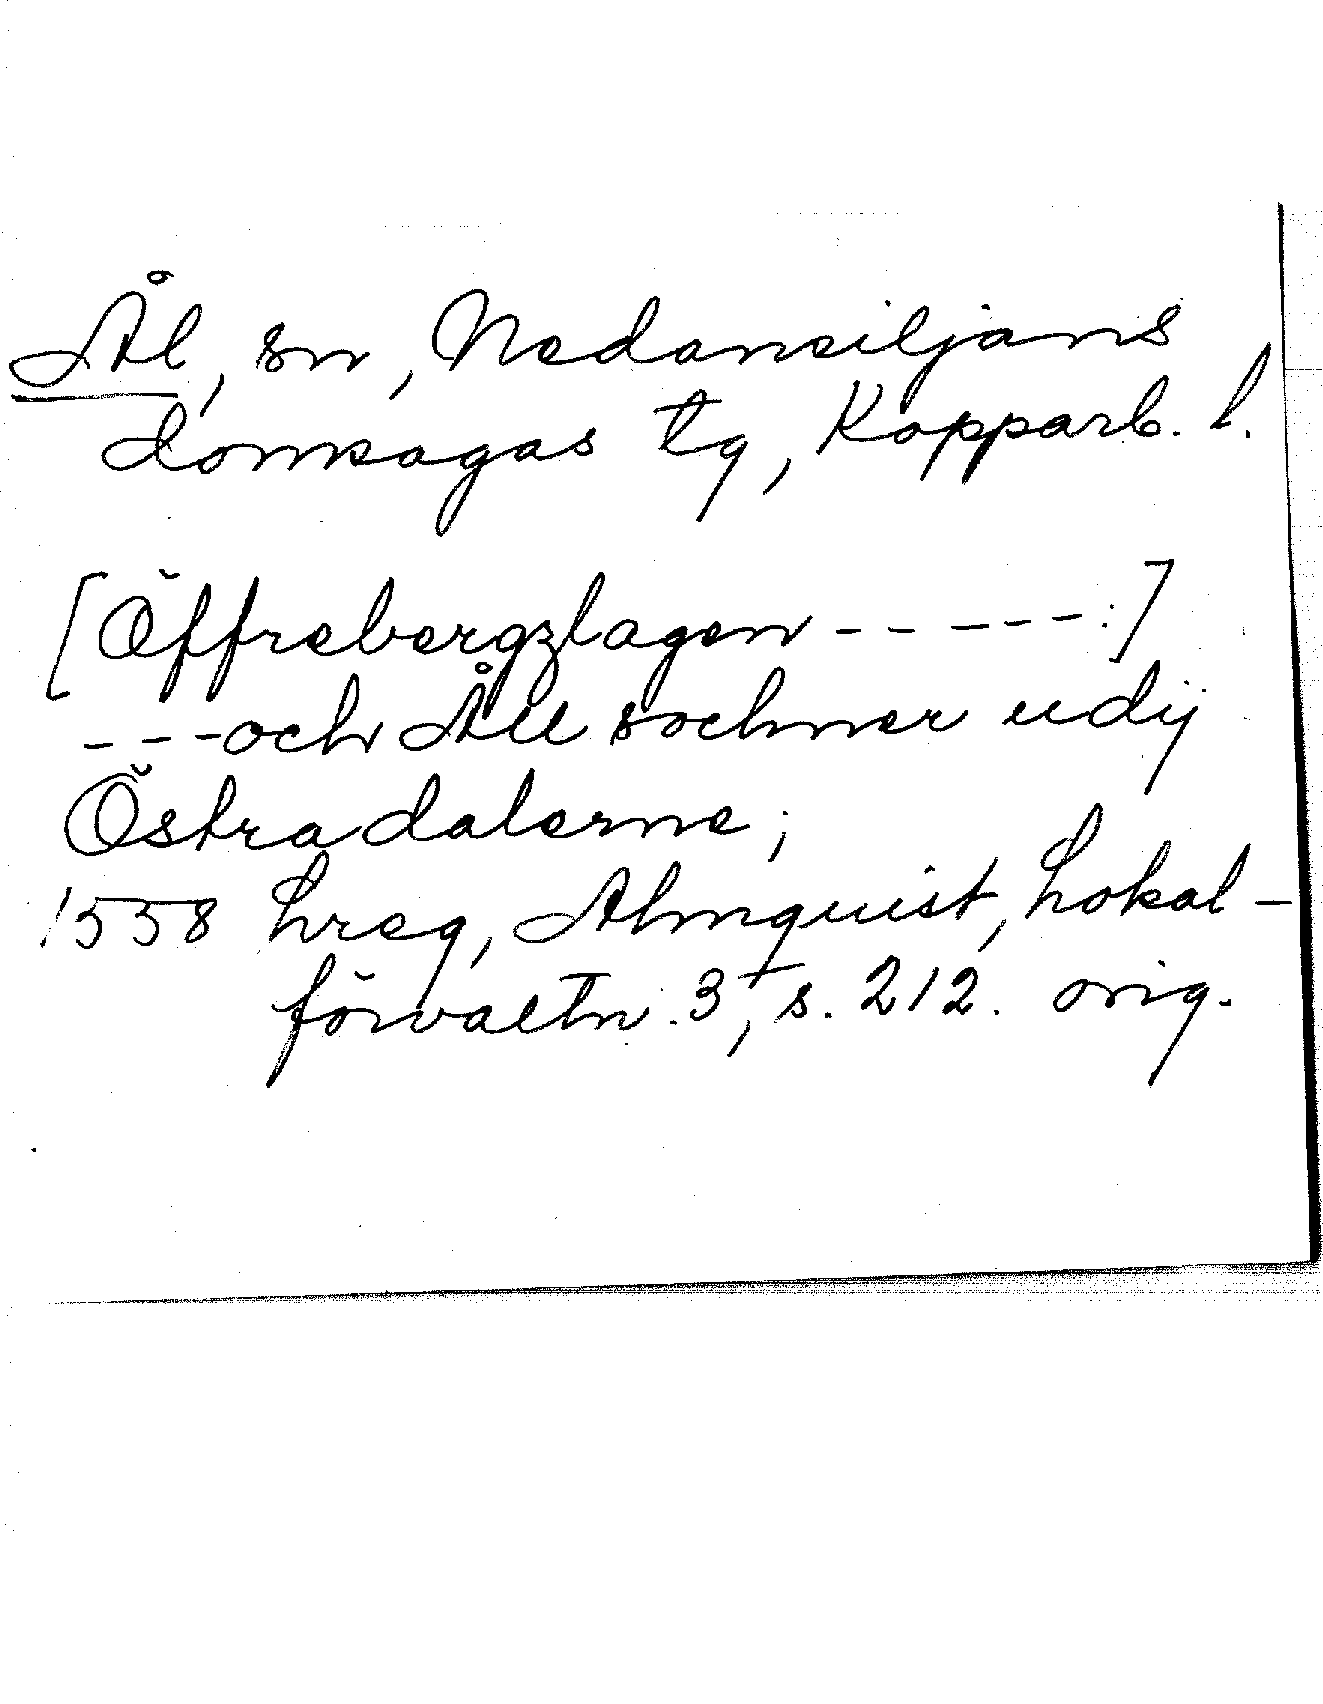 Ål, sn, Nedansiljans
domsagas tg, Kopparb. l.
[Öffrebergzlagen - - - - - :]
- - - och Åll sochner udij
Östradalerne;
1558 hreg, Almquist, Lokal-
förvaltn. 3, s. 212. orig.